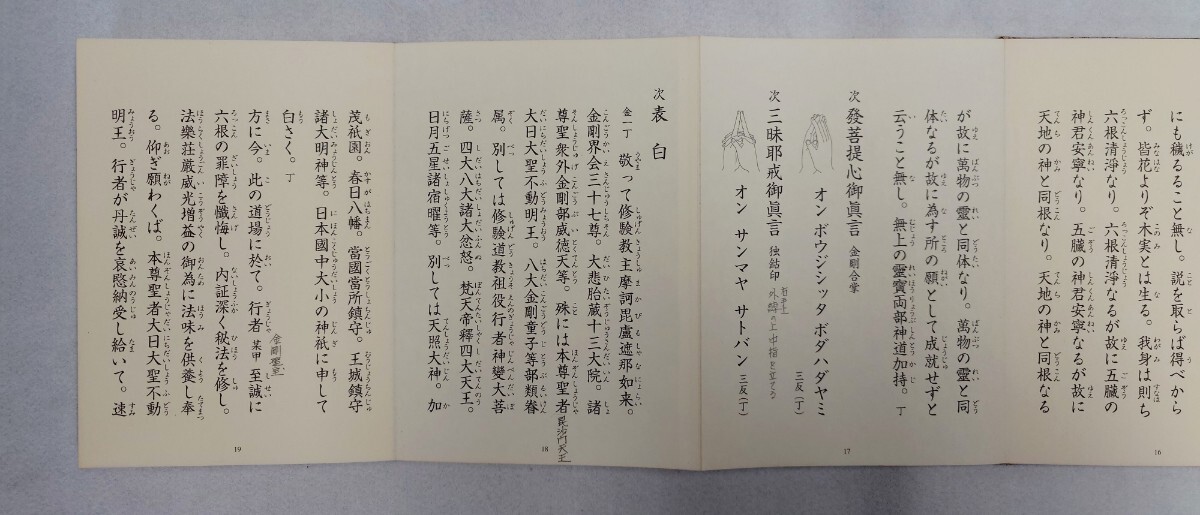 にも穢るること無し。説を取らば得べから
ず。皆花よりぞ木実とは生る。我身は則ち
六根清淨なり。六根清淨なるが故に五臓の
神君安寧なり。五臓の神君安寧なるが故に
天地の神と同根なり。天地の神と同根なる
16
が故に萬物の靈と同体なり。萬物の靈と同
体なるが故に為す所の願として成就せずと
云うこと無し。無上の靈寶両部神道加持。丁
次 發菩提心御眞言 金剛合掌
オン ボウヂシッタ ボダハダヤミ 三反(丁)
次 三昧耶戒御眞言 独鈷印
の上中指を立てる
オン サンマヤ サトバン 三反(丁)
17
次 表白
金一丁 敬って修験教主摩訶毘盧遮那如来。
金剛界会三十七尊。大悲胎蔵十三大院。諸
尊聖衆外金剛部威徳天等。殊には本尊聖者
毘沙門天王
大日大聖不動明王。八大金剛童子等部類眷
属。別しては修験道教祖役行者神變大菩
薩。四大八大諸大忿怒。梵天帝釋四大天王。
日月五星諸宿曜等。別しては天照大神。加
18
茂祇園。春日八幡。當國當所鎮守。王城鎮守
諸大明神等。日本國中大小の神祇に申して
白さく。丁
方に今。此の道場に於て。行者 某甲 至誠に
六根の罪障を懺悔し。内証深く秘法を修し。
法樂荘厳威光増益の御為に法味を供養し奉
る。仰ぎ願わくば。本尊聖者大日大聖不動
明王。行者が丹誠を哀愍納受し給いて。速
19